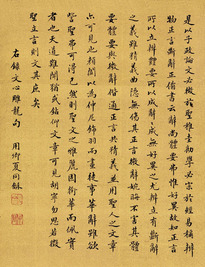 是以子政論文必徵於聖稚圭勸學必宗於經易稱辨
物正言斷辭則備書云辭尚體要弗惟好異故知正言
所以立辯體要所以成辭辭成無好異之尤辯立有斷辭
之義雖精義曲隱無傷其正言微辭婉晦不害其體
要體要與微辭偕通正言共精義並用聖人之文章
亦可見也顏闔以為仲尼飾羽而畫徒事華辭雖欲
訾聖弗可得已然則聖文之雅麗固銜華而佩實
者也天道難聞猶或鑽仰文章可見胡寧勿思若徵
聖立言則文其庶矣
右錄文心雕龍句
用卿夏同龢